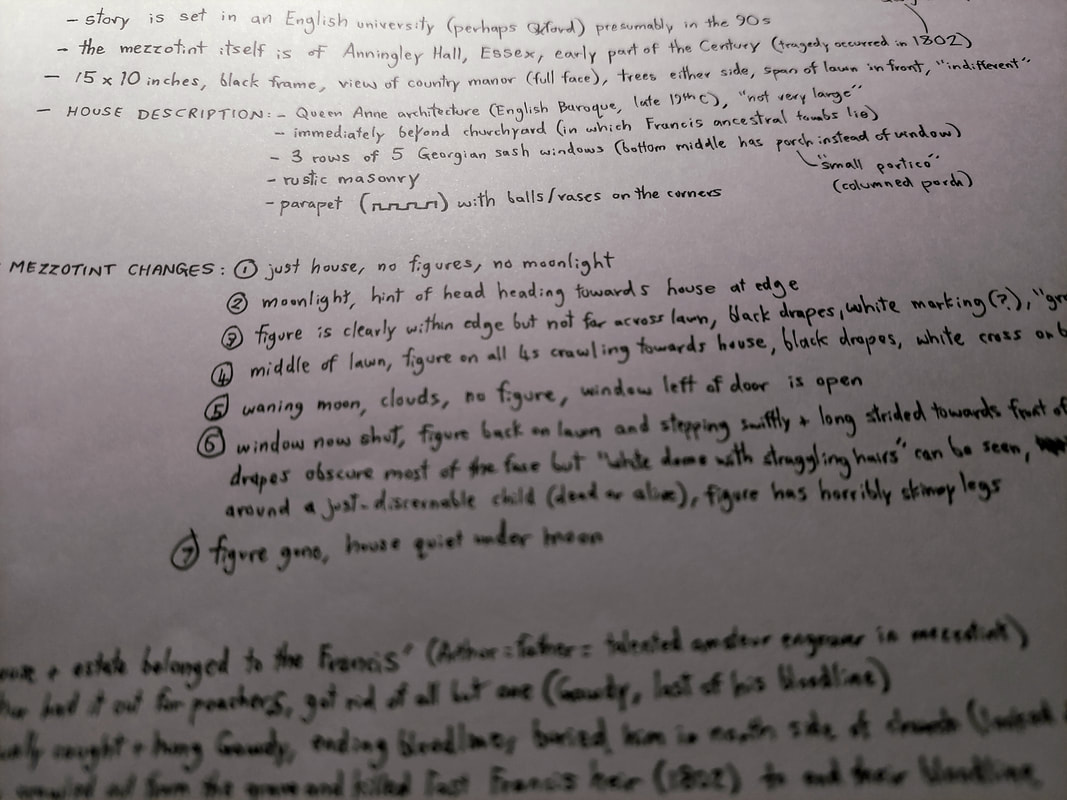 - story is set in an English university (perhaps Oxford) presumably in the 90s
- the mezzotint itself is of Anningley Hall, Essex, early part of the Century (tragedy occurred in 1802)
- 15 x 10 inches, black frame, view of country manor (full face), trees either side, span of lawn in front, "indifferent"
- HOUSE DESCRIPTION: - Queen Anne architecture (English Baroque, late 17th C), "not very large"
- immediately beyond churchyard (in which Francis ancestral tombs lie)
- 3 rows of 5 Georgian sash windows (bottom middle has porch instead of window)
"small portico"
(columned porch)
- rustic masonry
- parapet ( ) with balls/vases on the corners
MEZZOTINT CHANGES: ① just house, no figures, no moonlight
② moonlight, hint of head heading towards house at edge
③ figure is clearly within edge but not far across lawn, black drapes, white marking (?),
④ middle of lawn, figure on all 4s crawling towards house, black drapes, white cross on
⑤ waning moon, clouds, no figure, window left of door is open
⑥ window now shut, figure back on lawn and stepping swiftly + long strided towards front of
drapes obscure most of the face but "white dome with straggling hairs" can be seen,
around a just-discernable child (dead or alive), figure has horribly skinny legs
⑦ figure gone, house quiet under moon
+ estate belonged to the Francis' (Arthur = father = talented amateur engraver in mezzotint)
had it out for poachers, got rid of all but one (Gawdy, last of his bloodline)
caught + hung Gawdy, ending bloodline, buried him in north side of church
out from the grave and killed last Francis heir (1802) to end their bloodline